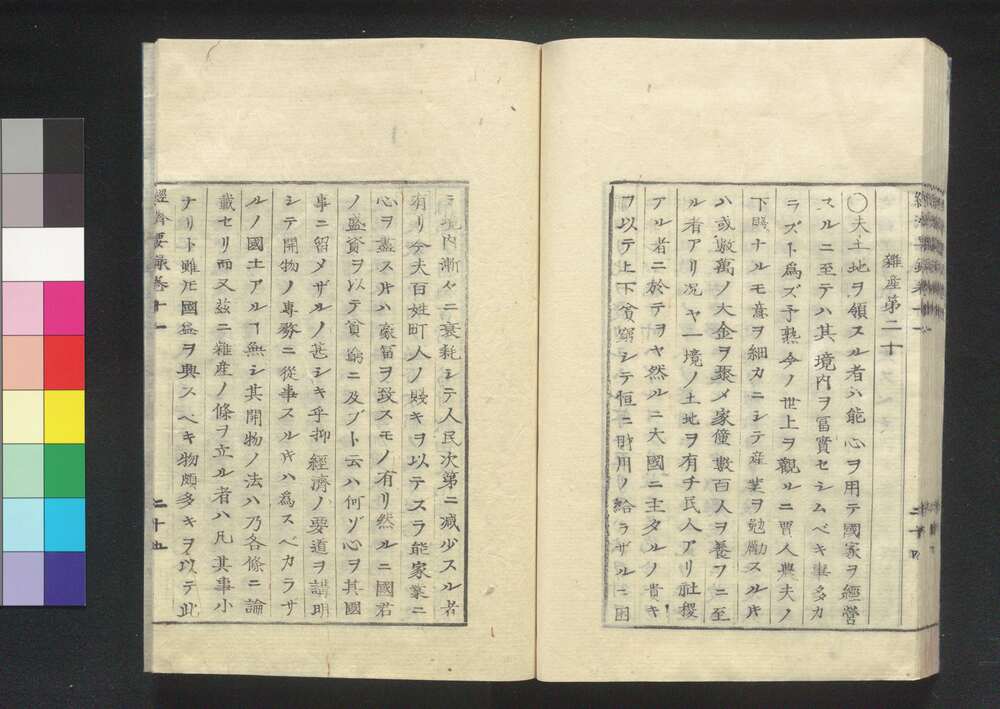 雜産第二十
〇夫土地ヲ領スル者ハ能心ヲ用テ國家ヲ經營
スルニ至テハ其境内ヲ冨實セシムベキ事多カ
ラズト爲ズ予熟今ノ世上ヲ觀ルニ賈人輿夫ノ
下賤ナルモ意ヲ細カニシテ産業ヲ勉勵スル片
ハ或數萬ノ大金ヲ聚メ家僮數百人ヲ養フニ至
ル者アリ况ヤ一境ノ土地ヲ有チ民人アリ社稷
アル者ニ於テヲヤ然ルニ大國ニ主タルノ貴キ
ヲ以テ上下貧窮シテ恒ニ財用ノ給ラザルニ困
ミ境内漸々ニ衰耗シテ人民次第ニ減少スル者
有リ夫百姓町人ノ賤キヲ以テスラ能家業ニ
心ヲ盡ス片ハ豪冨ヲ致スモノ有リ然ルニ國君
ノ盛資ヲ以テ貧窮ニ及ブト云ハ何ゾ心ヲ其國
事ニ留メザルノ甚シキ乎抑經濟ノ要道ヲ講明
シテ開物ノ專務ニ從事スル片ハ爲スベカラザ
ルノ國土アルヿ無シ其開物ノ法ハ乃各條ニ論
載セリ而又茲ニ雜産ノ條ヲ立ル者ハ凡其事小
ナリト雖𪜈國益ヲ興スベキ物頗多キヲ以テ此
經濟要録卷十一
二十五